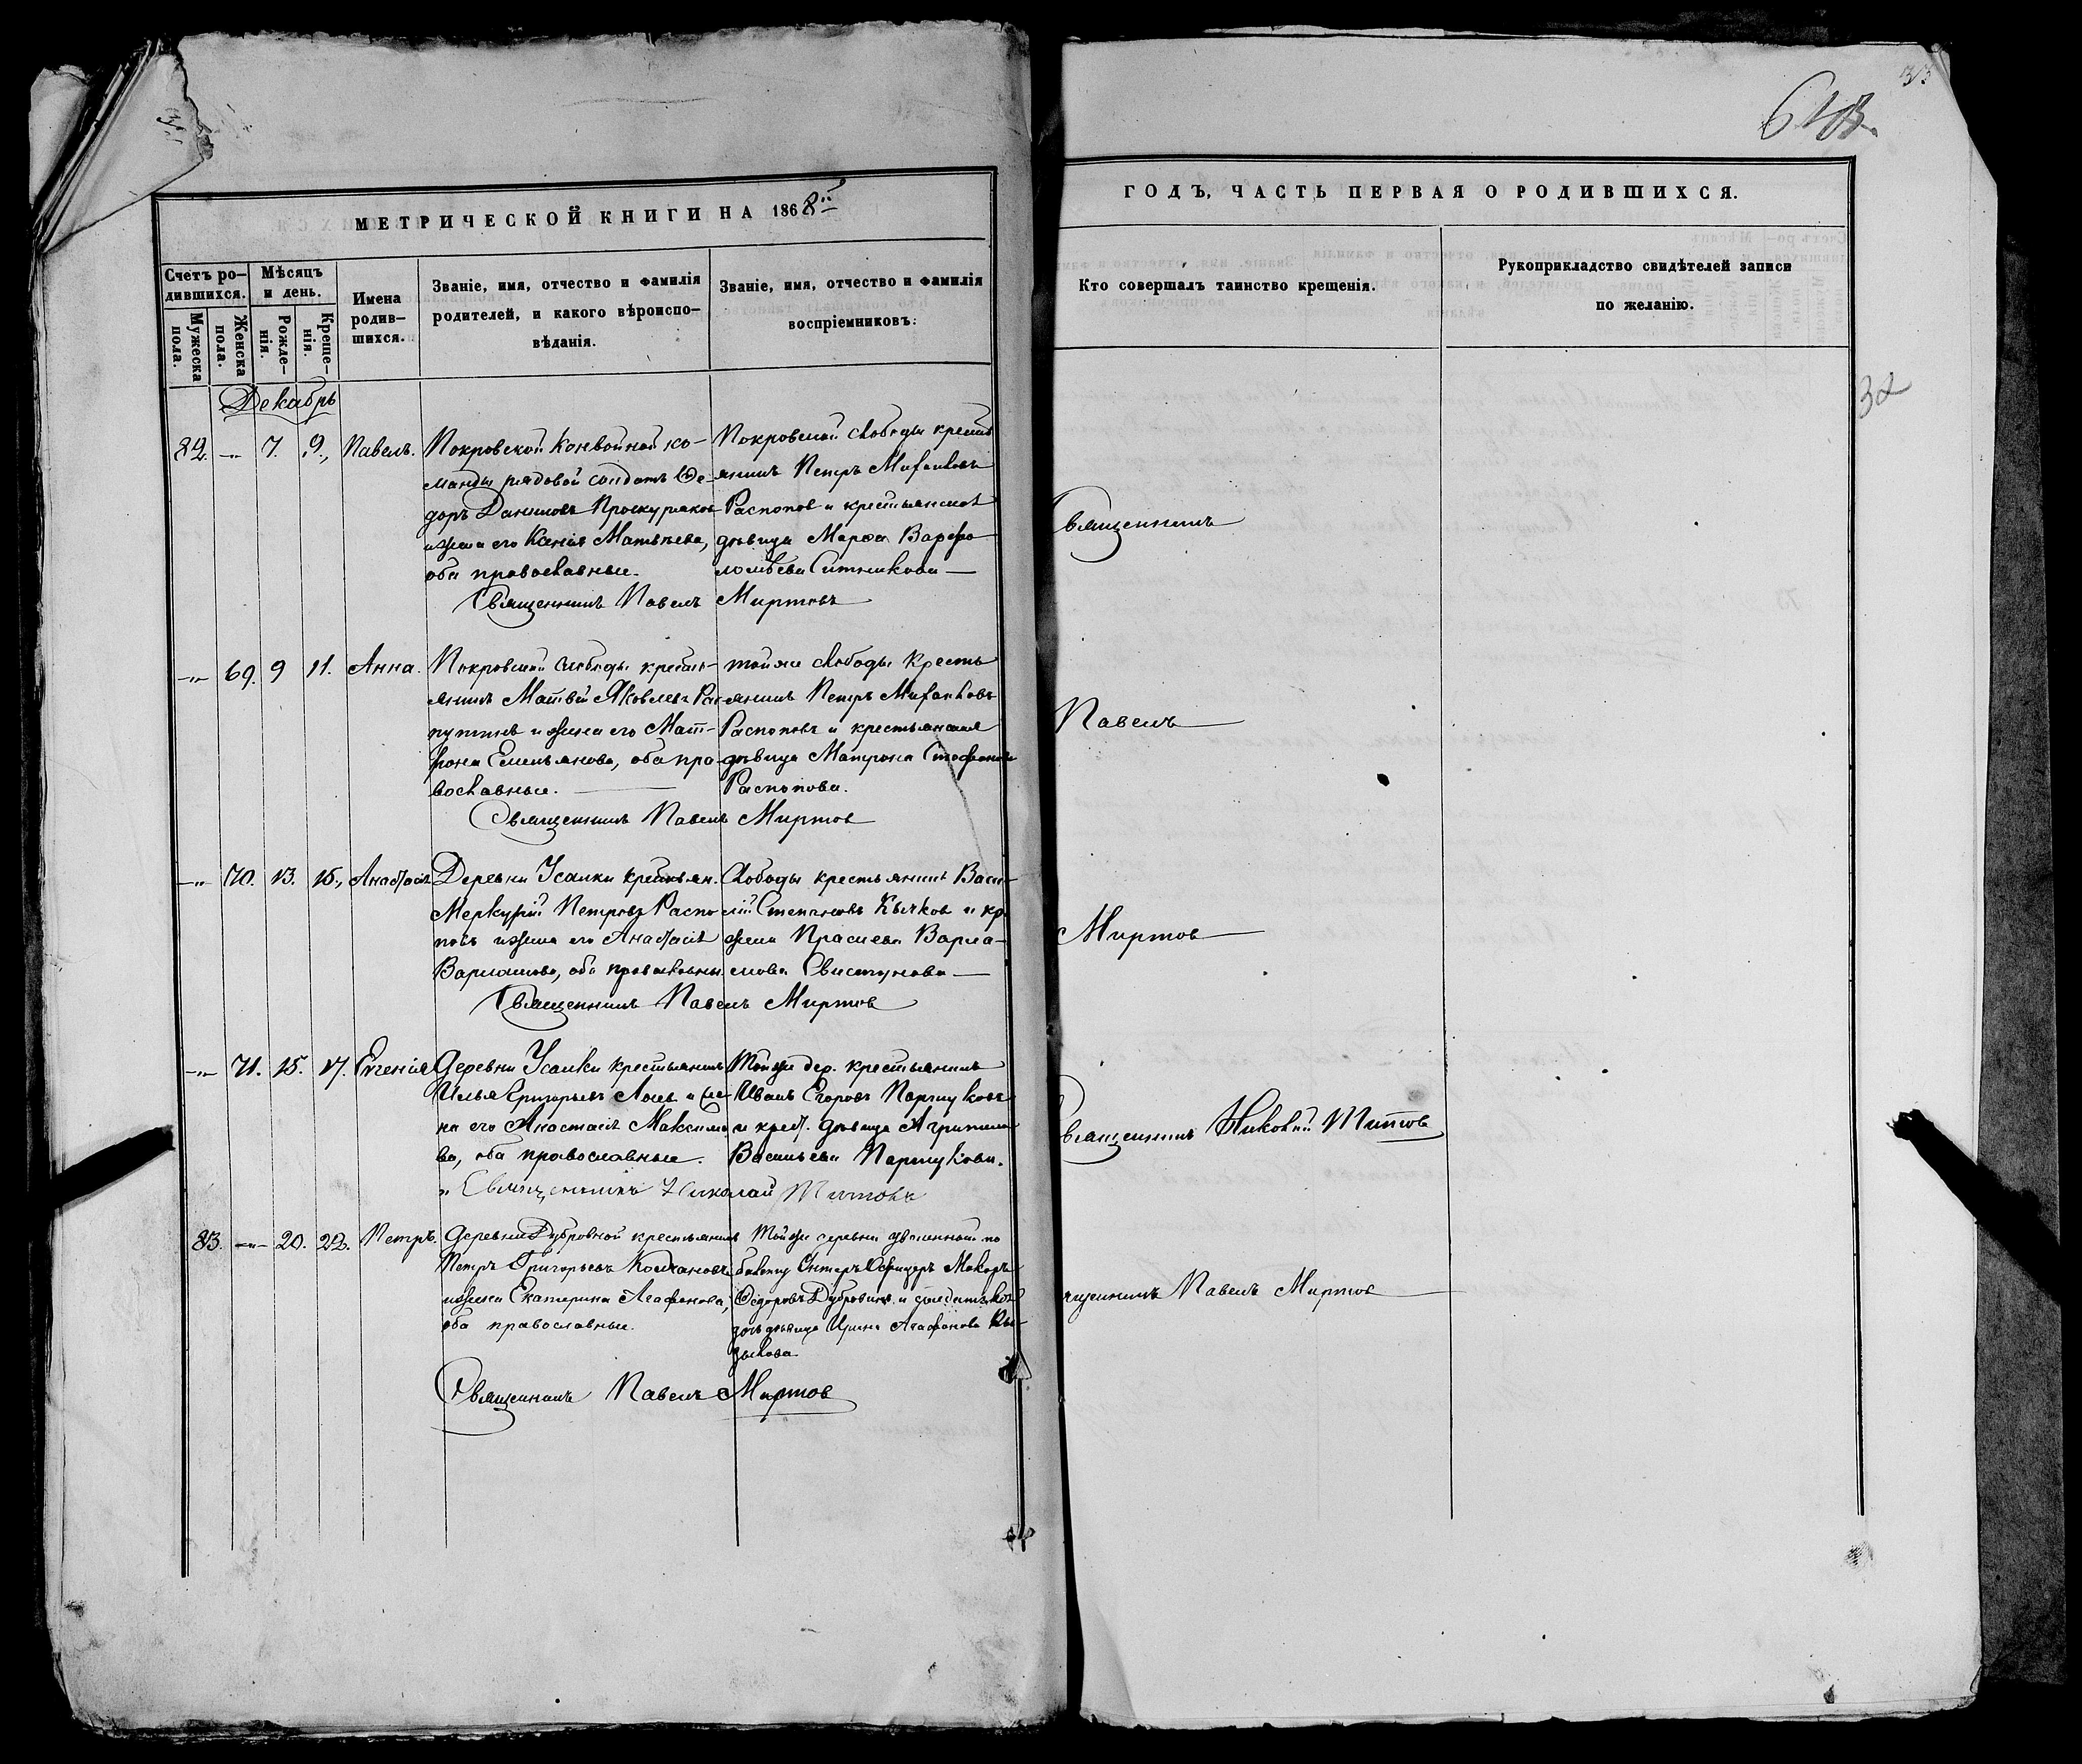 33
648.
МЕТРИЧЕСКОЙ КНИГИ НА 1868й
ГОДЪ, ЧАСТЬ ПЕРВАЯ О РОДИВШИХСЯ.
Счетъ ро-
дившихся.
Мужеска
пола.
Женска
пола.
Мѣсяцъ
и день.
Рожде-
нія.
Креще-
нія.
Имена
родив-
шихся.
Званіе, имя, отчество и фамилія
родителей, и какого вѣроиспо-
вѣданія.
Званіе, имя, отчество и фамилія
воспріемниковъ.
Кто совершалъ таинство крещенія.
Рукоприкладство свидѣтелей записи
по желанію.
32
Декабрь
82. -"- 7. 9., Павелъ.
Покровской Конвойной ко-
манды рядовой солдатъ Ѳе-
доръ Даниловъ Проскуряков
и жена его Ксенія Матвѣева,
оба православные.
Покровской слободы кресть
янинъ Петръ Михаиловъ
Распопов и крестьянская
дѣвица Марѳа Варѳо
ломѣева Ситникова
Священникъ Павелъ Миртовъ
Священникъ
-"- 69. 9 11. Анна.
Покровской слободы кресть-
янинъ Матвѣй Яковлевъ Рас
путинъ и жена его Мат-
рона Емельянова, оба пра-
вославные.
тойже слободы Кресть
янинъ Петръ Михаиловъ
Распоповъ и крестьянская
дѣвица Матрона Стефанова
Распопова.
Священникъ Павелъ Миртов
Павелъ
-"- 70. 13. 15., Анастасія
Деревни Усалки крестьян.
Меркурій Петровъ Распо
повъ и жена его Анастасія
Варламова, оба православны.
Слободы крестьянинъ Васи-
лій Степановъ Бычков и кр.
жена Праскева Варла-
мова Свистунова
Священникъ Павелъ Миртов
Миртов
-"- 71. 15. 17. Евгенія
Деревни Усалки крестьянинъ
Илья Григорьевъ и же
на его Анастасія Максимо
ва, оба православные.
Тойже дер. крестьянинъ
Иванъ Егоровъ Паршуковъ
и крест. дѣвица Агрипина
Васильева Паршукова.
" Священникъ Николай Титовъ
Священникъ Николай Титов
83. -"- 20. 22. Петръ.
Деревни Дубровной крестьянинъ
Петръ Григорьевъ Колчановъ
и жена Екатерина Агафонова,
оба православные.
Тойже деревни уволенной по
билету Унтеръ Офицеръ Макаръ
Ѳедоровъ Дубровинъ и солдатская
дочь дѣвица Ирина Агафонова Кы-
зылова
Священникъ Павелъ Миртов
ященникъ Павелъ Миртов